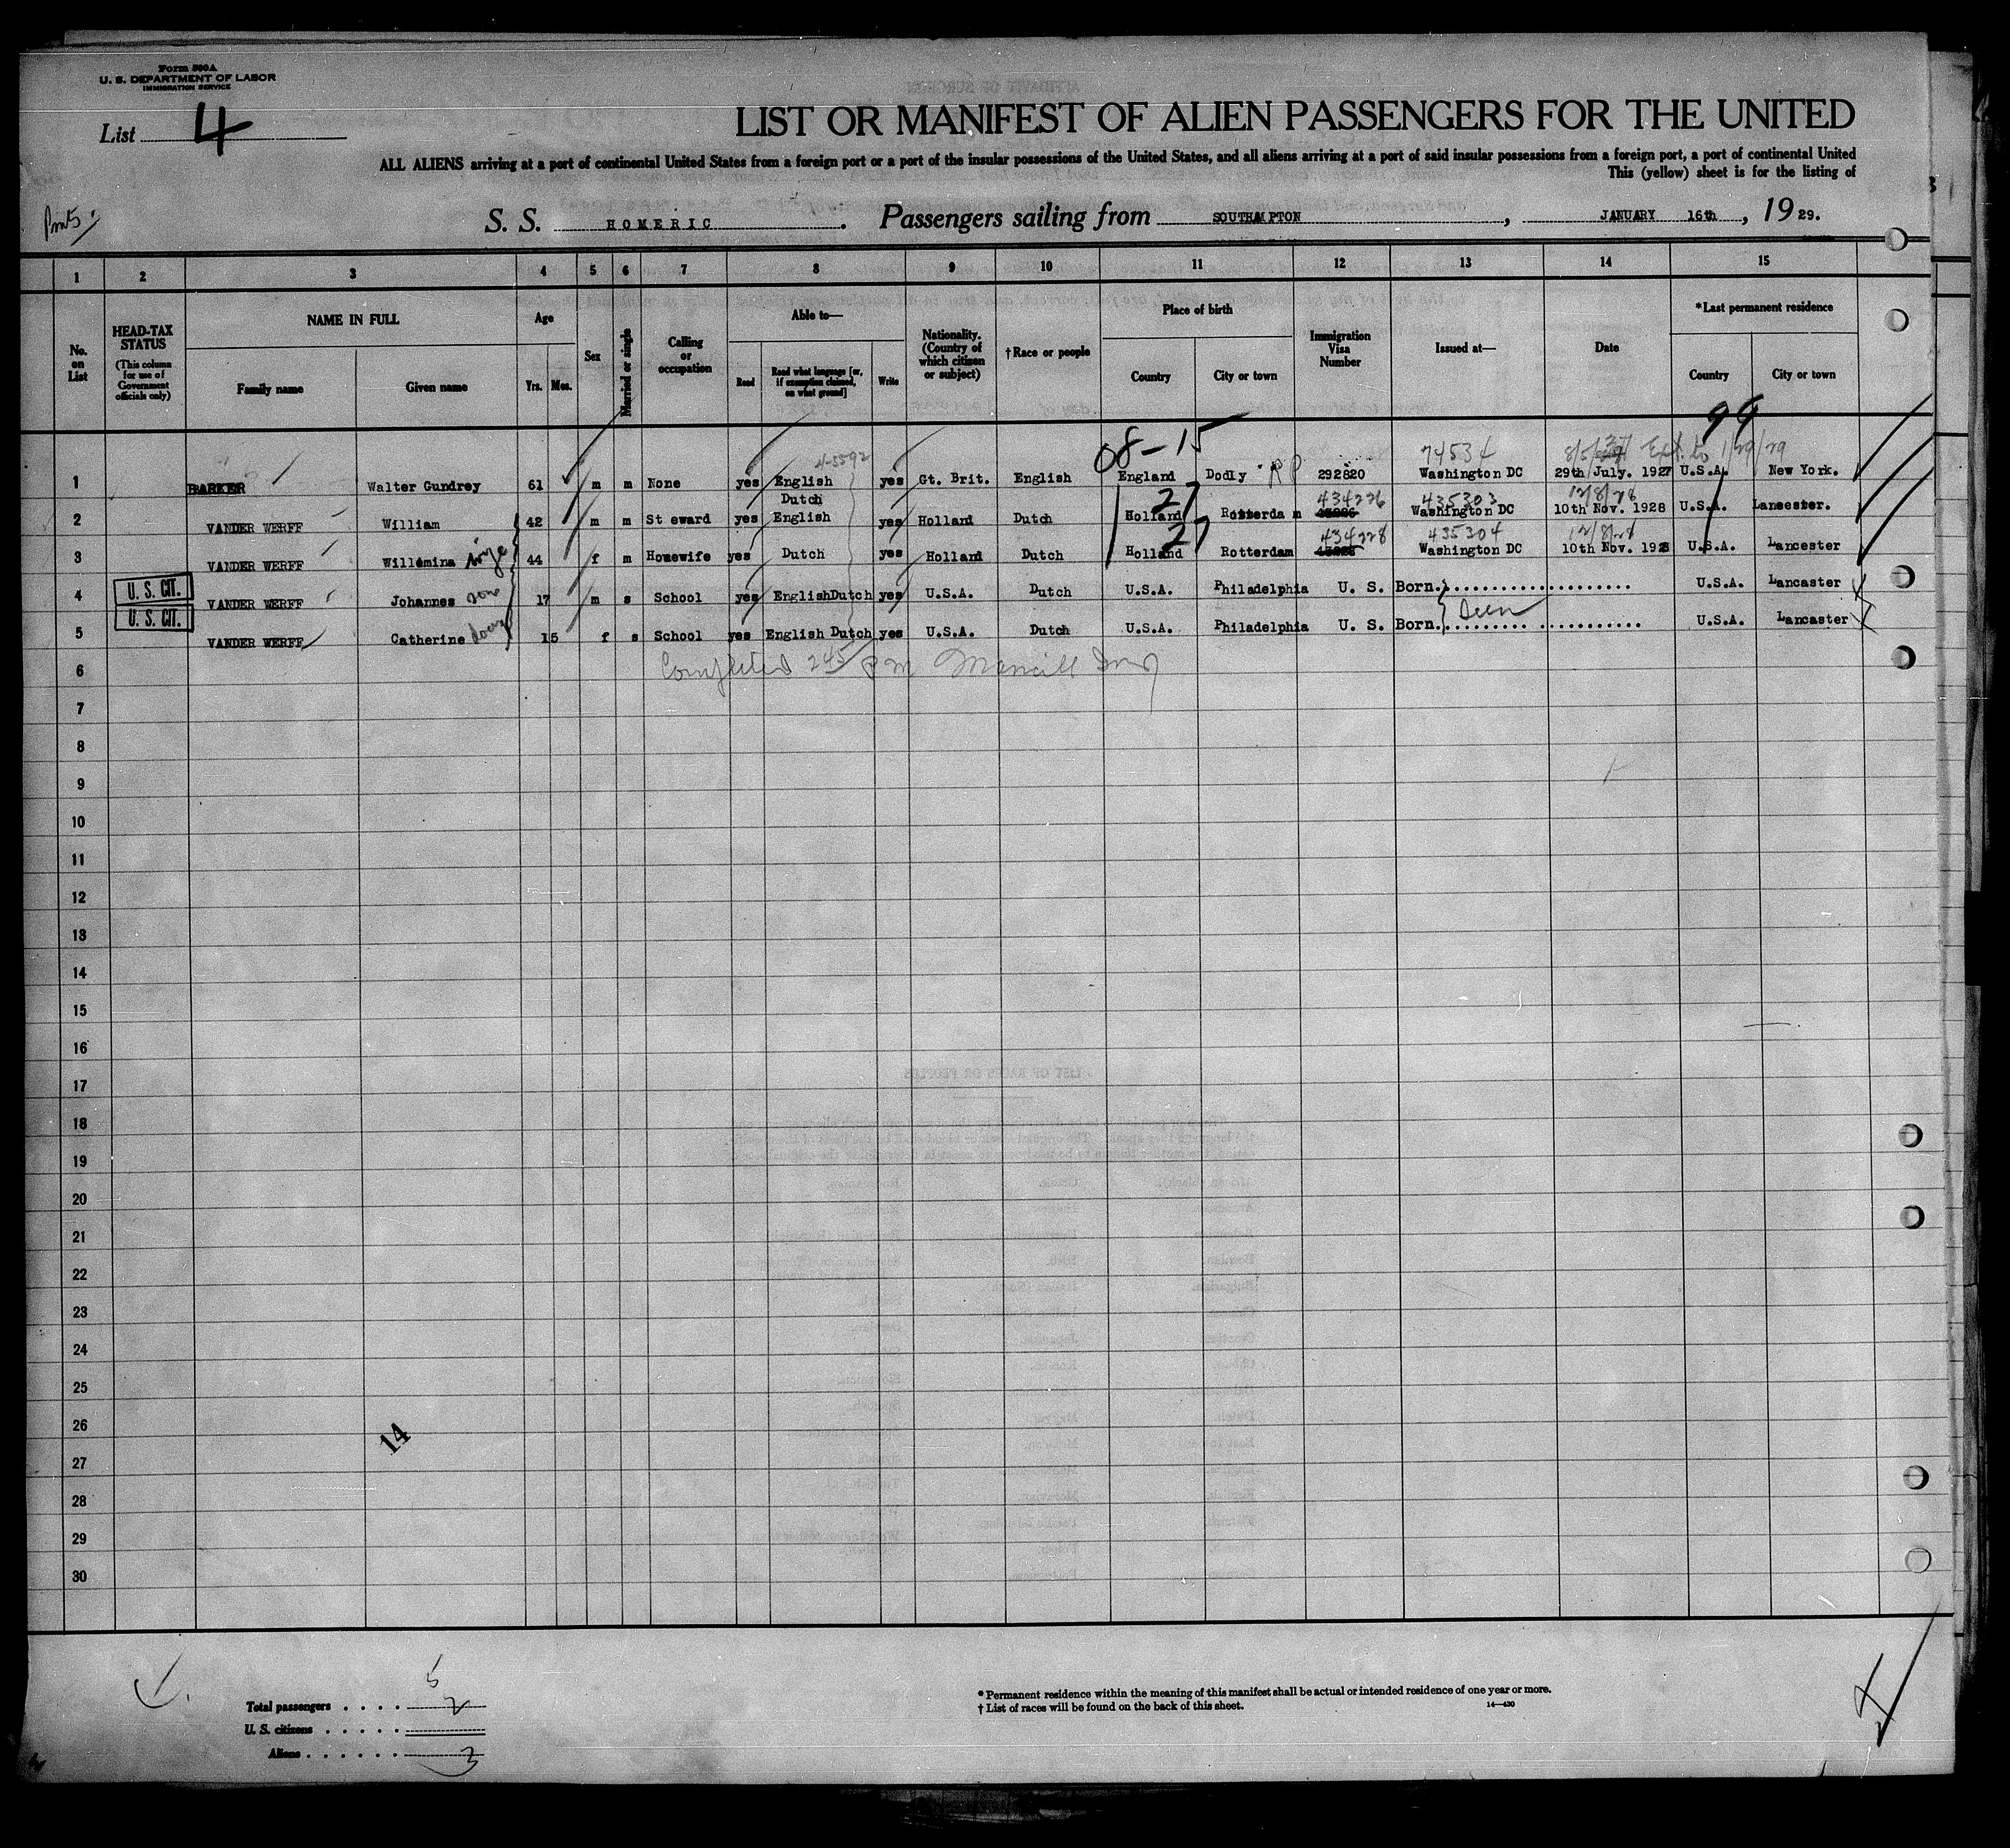 Form 500A
U. S. DEPARTMENT OF LABOR
IMMIGRATION SERVICE
List 4
LIST OR MANIFEST OF ALIEN PASSENGERS FOR THE UNITED
ALL ALIENS arriving at a port of continental United States from a foreign port or a port of the insular possessions of the United States, and all aliens arriving at a port of said insular possessions from a foreign port, a port of continental United
This (yellow) sheet is for the listing of
S. S. HOMERIC. Passengers sailing from SOUTHAMPTON, JANUARY 16th, 1929.
1 2 3 4 5 6 7 8 9 10 11 12 13 14 15
No. on List
HEAD-TAX STATUS (This column for use of Government officials only)
NAME IN FULL
Family name Given name
Age
Yrs. Mos.
Sex
Married or single
Calling or occupation
Able to—
Read Read what language [or, if exemption claimed, on what ground] Write
Nationality. (Country of which citizen or subject)
†Race or people
Place of birth
Country City or town
Immigration Visa Number
Issued at—
Date
*Last permanent residence
Country City or town
99
08-15
4-5592 74534 Ext. to 1/29/29
1 BARKER Walter Gundrey 61 m m None yes English yes Gt. Brit. English England Dodly RP 292820 Washington DC 29th July. 1927 U.S.A. New York.
Dutch 27 434226 435303 12/8/28
2 VANDER WERFF William 42 m m Steward yes English yes Holland Dutch Holland Rotterdam Washington DC 10th Nov. 1928 U.S.A. Lancester.
27 434228 435304 12/8/28
3 VANDER WERFF Willemina wife 44 f m Housewife yes Dutch yes Holland Dutch Holland Rotterdam Washington DC 10th Nov. 1928 U.S.A. Lancester
4 U. S. CIT. VANDER WERFF Johannes son 17 m s School yes EnglishDutch yes U.S.A. Dutch U.S.A. Philadelphia U. S. Born. U.S.A. Lancaster
5 U. S. CIT. VANDER WERFF Catherine 15 f s School yes English Dutch yes U.S.A. Dutch U.S.A. Philadelphia U. S. Born. U.S.A. Lancaster
6 Completed 245 PM
7
8
9
10
11
12
13
14
15
16
17
18
19
20
21
22
23
24
25
26
14
27
28
29
30
5
Total passengers . . . . 2
U. S. citizens . . . . .
Aliens . . . . . . 3
* Permanent residence within the meaning of this manifest shall be actual or intended residence of one year or more.
† List of races will be found on the back of this sheet. 14—430